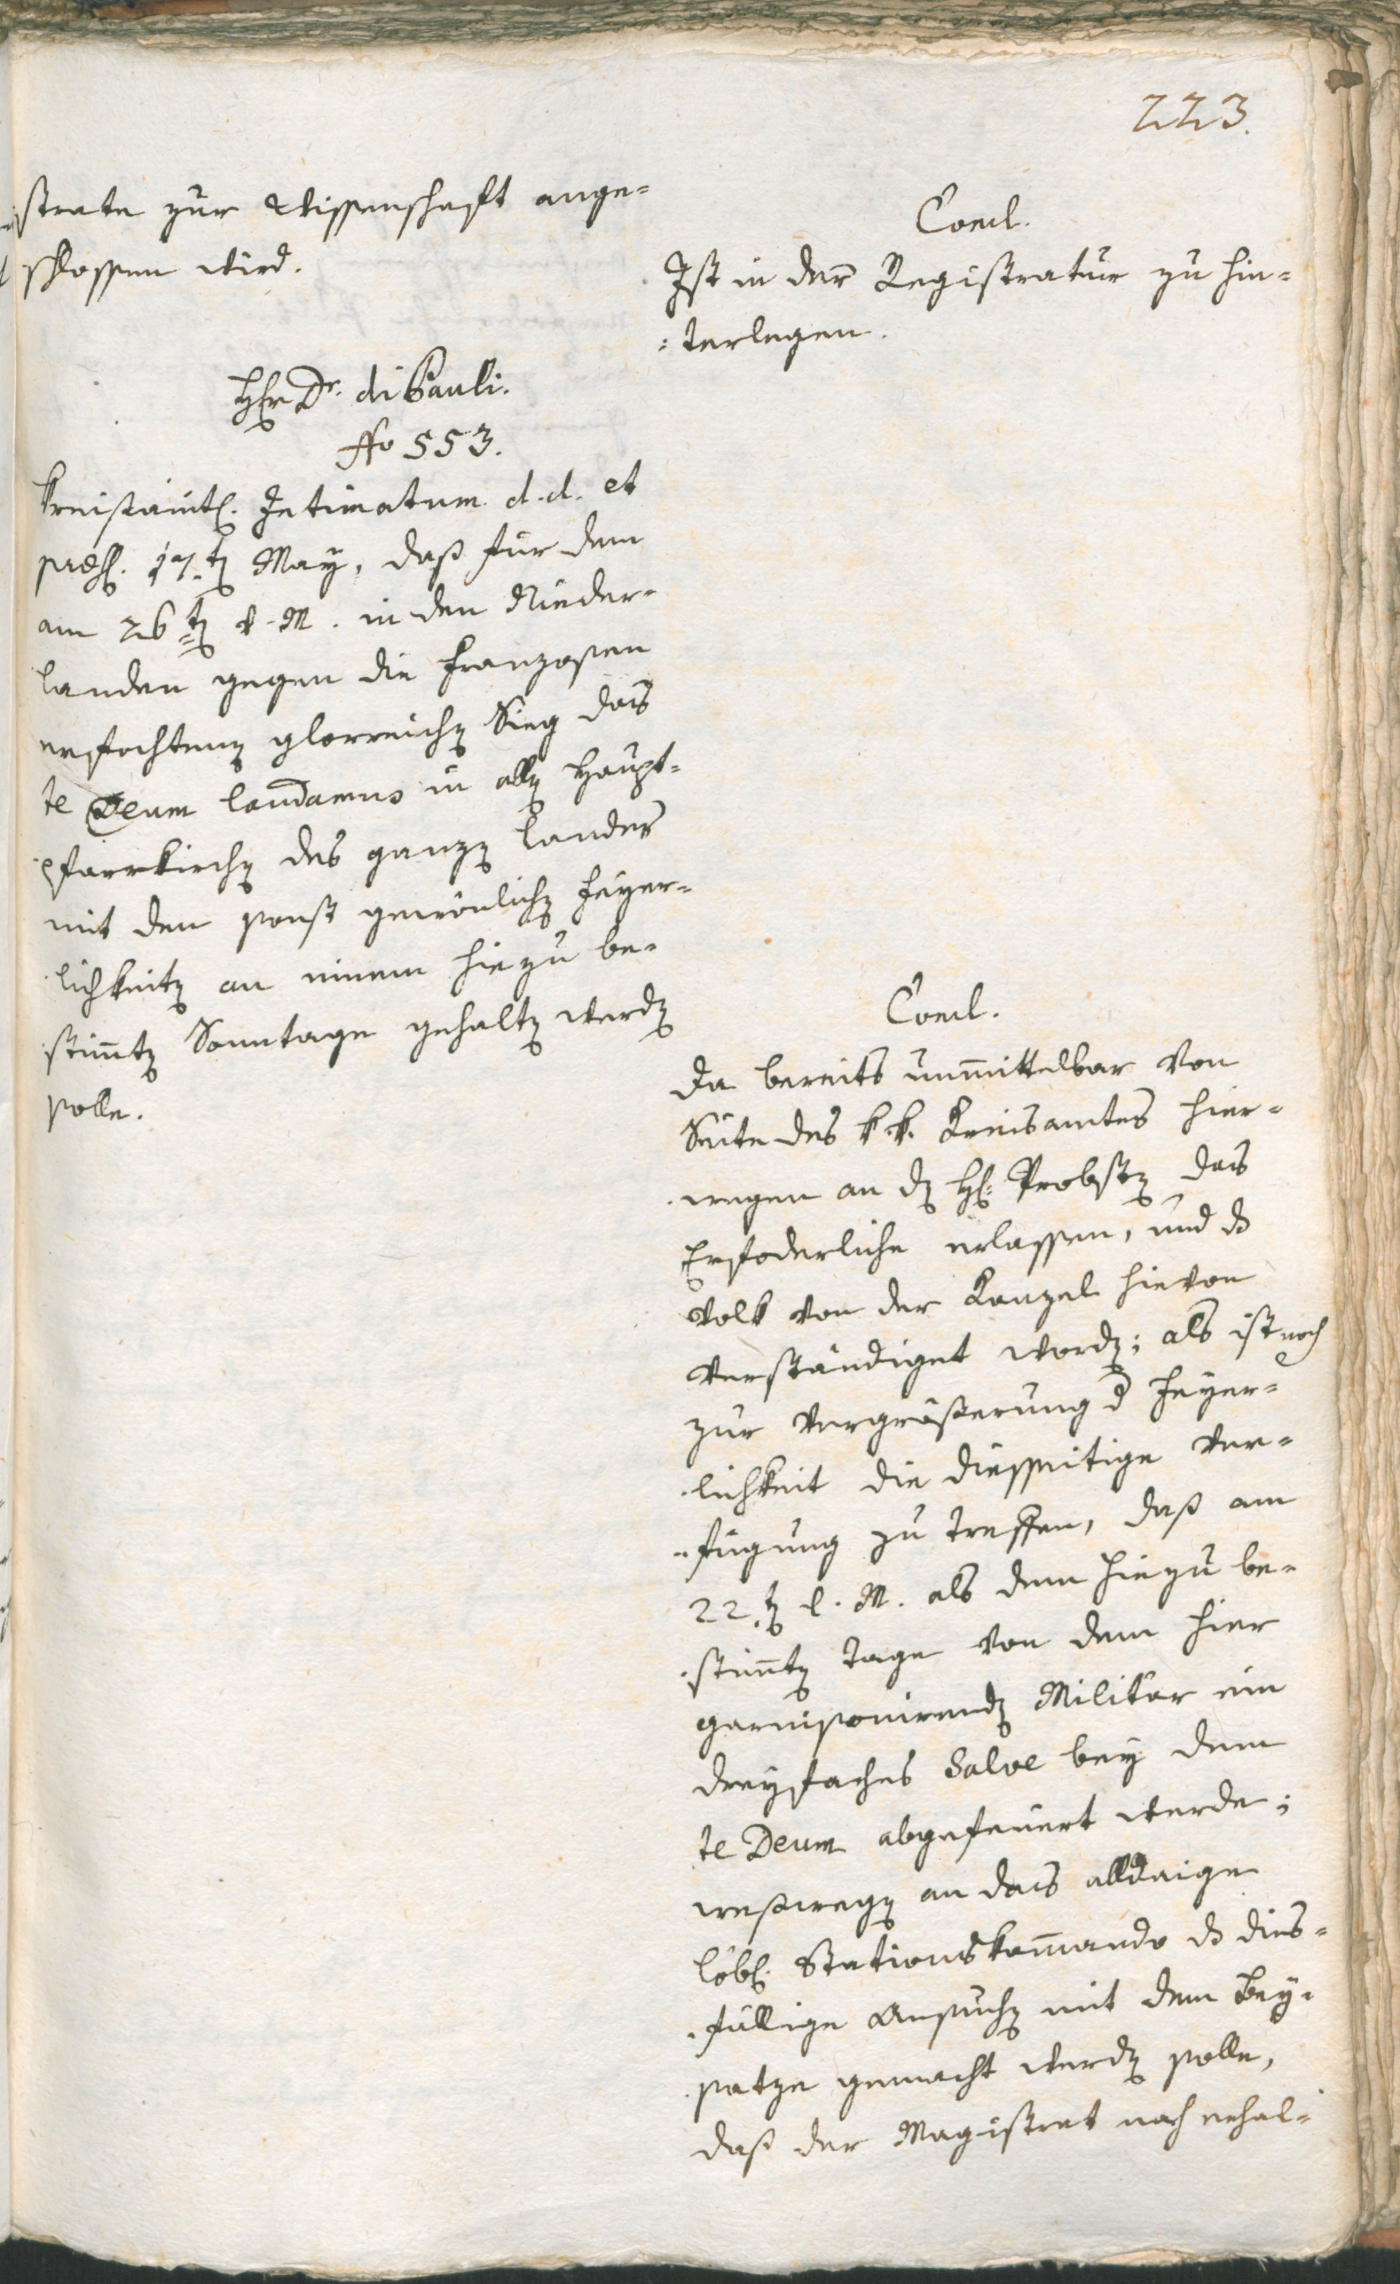 223.
strate zur Wissenschaft ange=
schlossen wird.
Concl.
Ist in der Registratur zu hin=
=terlegen.
Hr Dr. di Pauli.
No 553.
Kreisämtl. Intimatum d. d. et
præs. 17.t May, daß für dem
am 26t v. M. in den Nieder=
landen gegen die Franzosen
erfochtenen glorreichen Sieg das
te Deum laudamus in allen Haupt=
pfarrkirchen des ganzen Landes
mit den sonst gewönlichen Feyer=
lichkeiten an einem hiezu be=
stimten Sonntage gehalten werden
solle.
Concl.
Da bereits unmittelbar von
Seite des k. k. Kreisamtes hier=
wegen an den H. Probsten das
Erfoderliche erlassen, und ds
Volk von der Kanzel hievon
verständiget worden; als ist noch
zur Vergrößerung d Feyer=
lichkeit die diesseitige Ver=
fügung zu treffen, daß am
22.t l. M. als dem hiezu be=
stimten Tage von dem hier
garnisonirenden Militär ein
dreyfaches Salve bey dem
te Deum abgefeuert werde;
weßwegen an das alldaige
löbl. Stationskommando ds dies=
fällige Ansuchen mit dem Bey=
satze gemacht werden solle,
daß der Magistrat nach erhal=